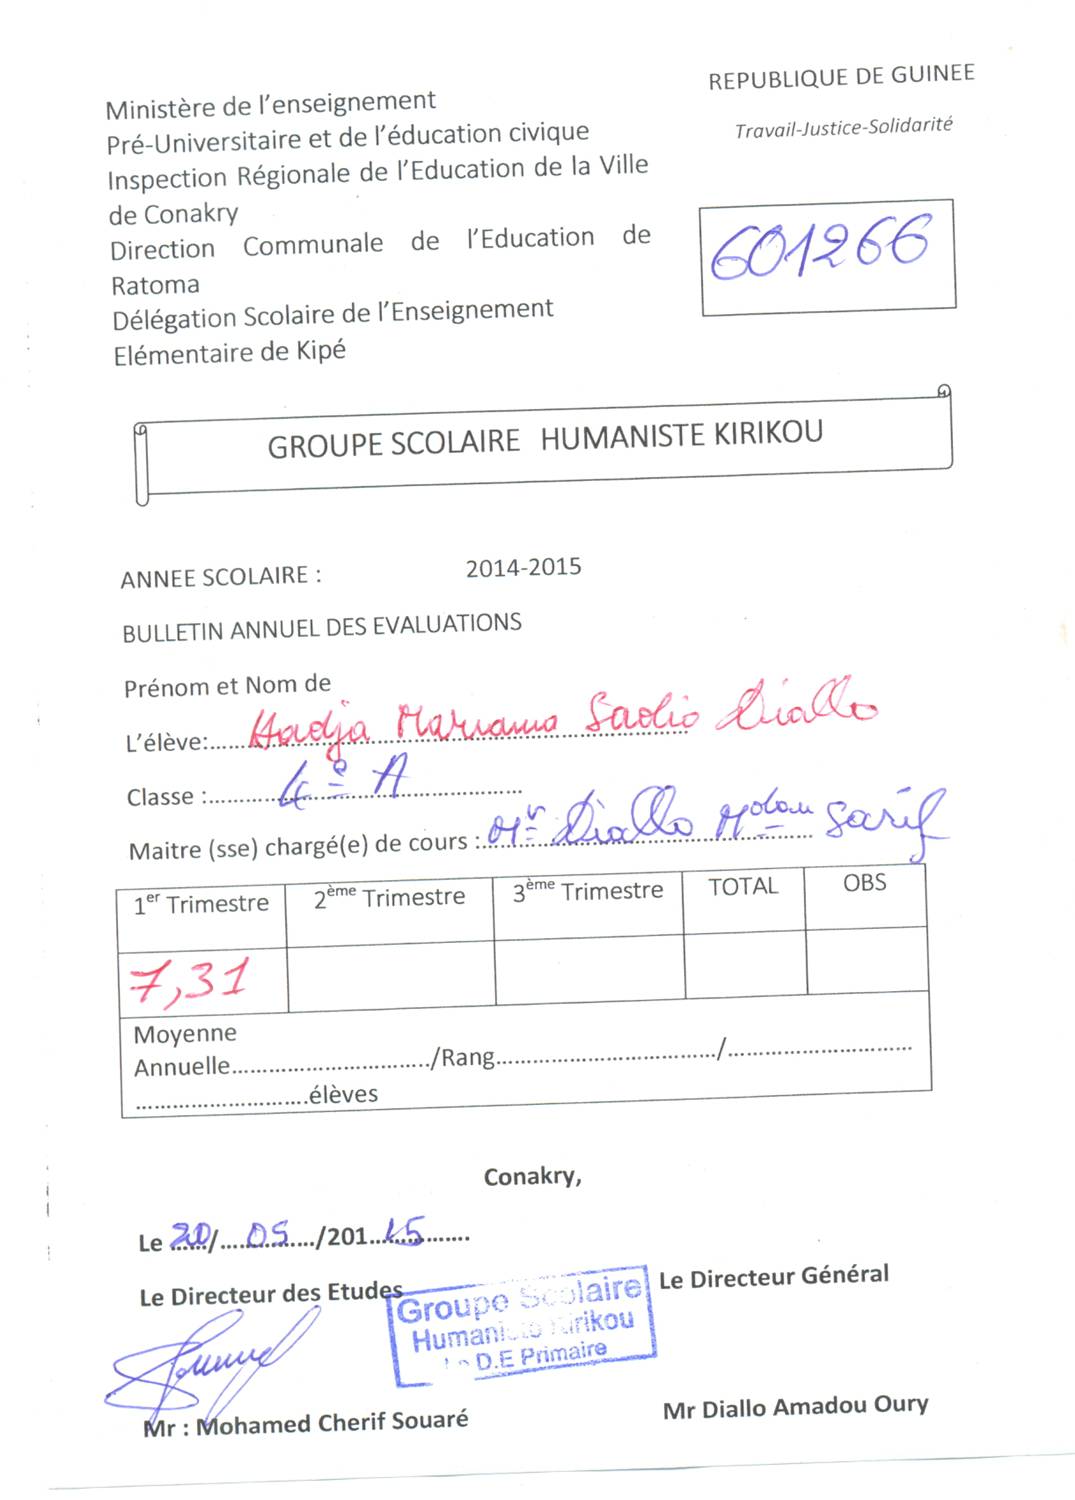 REPUBLIQUE DE GUINEE
Travail-Justice-Solidarité
Ministère de l'enseignement
Pré-Universitaire et de l'éducation civique
Inspection Régionale de l'Education de la Ville
de Conakry
Direction Communale de l'Education de
Ratoma
Délégation Scolaire de l'Enseignement
Elémentaire de Kipé
601266
GROUPE SCOLAIRE HUMANISTE KIRIKOU
ANNEE SCOLAIRE : 2014-2015
BULLETIN ANNUEL DES EVALUATIONS
Prénom et Nom de
L'élève:...... Hadja Mariama Sadio Diallo
Classe :...... 4e A
Maitre (sse) chargé(e) de cours :...... Mr Diallo Mdou Sarif
1er Trimestre 2ème Trimestre 3ème Trimestre TOTAL OBS
7,31
Moyenne
Annuelle............................../Rang................................/............................
..........................élèves
Conakry,
Le 20/ 05 /201 15
Le Directeur des Etudes Le Directeur Général
Groupe Scolaire
Humaniste Kirikou
D.E Primaire
Mr : Mohamed Cherif Souaré Mr Diallo Amadou Oury